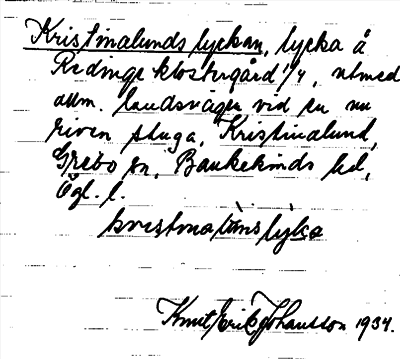 Kristinalunds lyckan, lycka å
Redinge klostergård 1/4, utmed
allm. landsvägen vid en nu
riven stuga, Kristinalund,
Grebo sn, Bankekinds hd,
Ögl. l.
krestinalùns lýka
Knut Erik Johansson 1934.